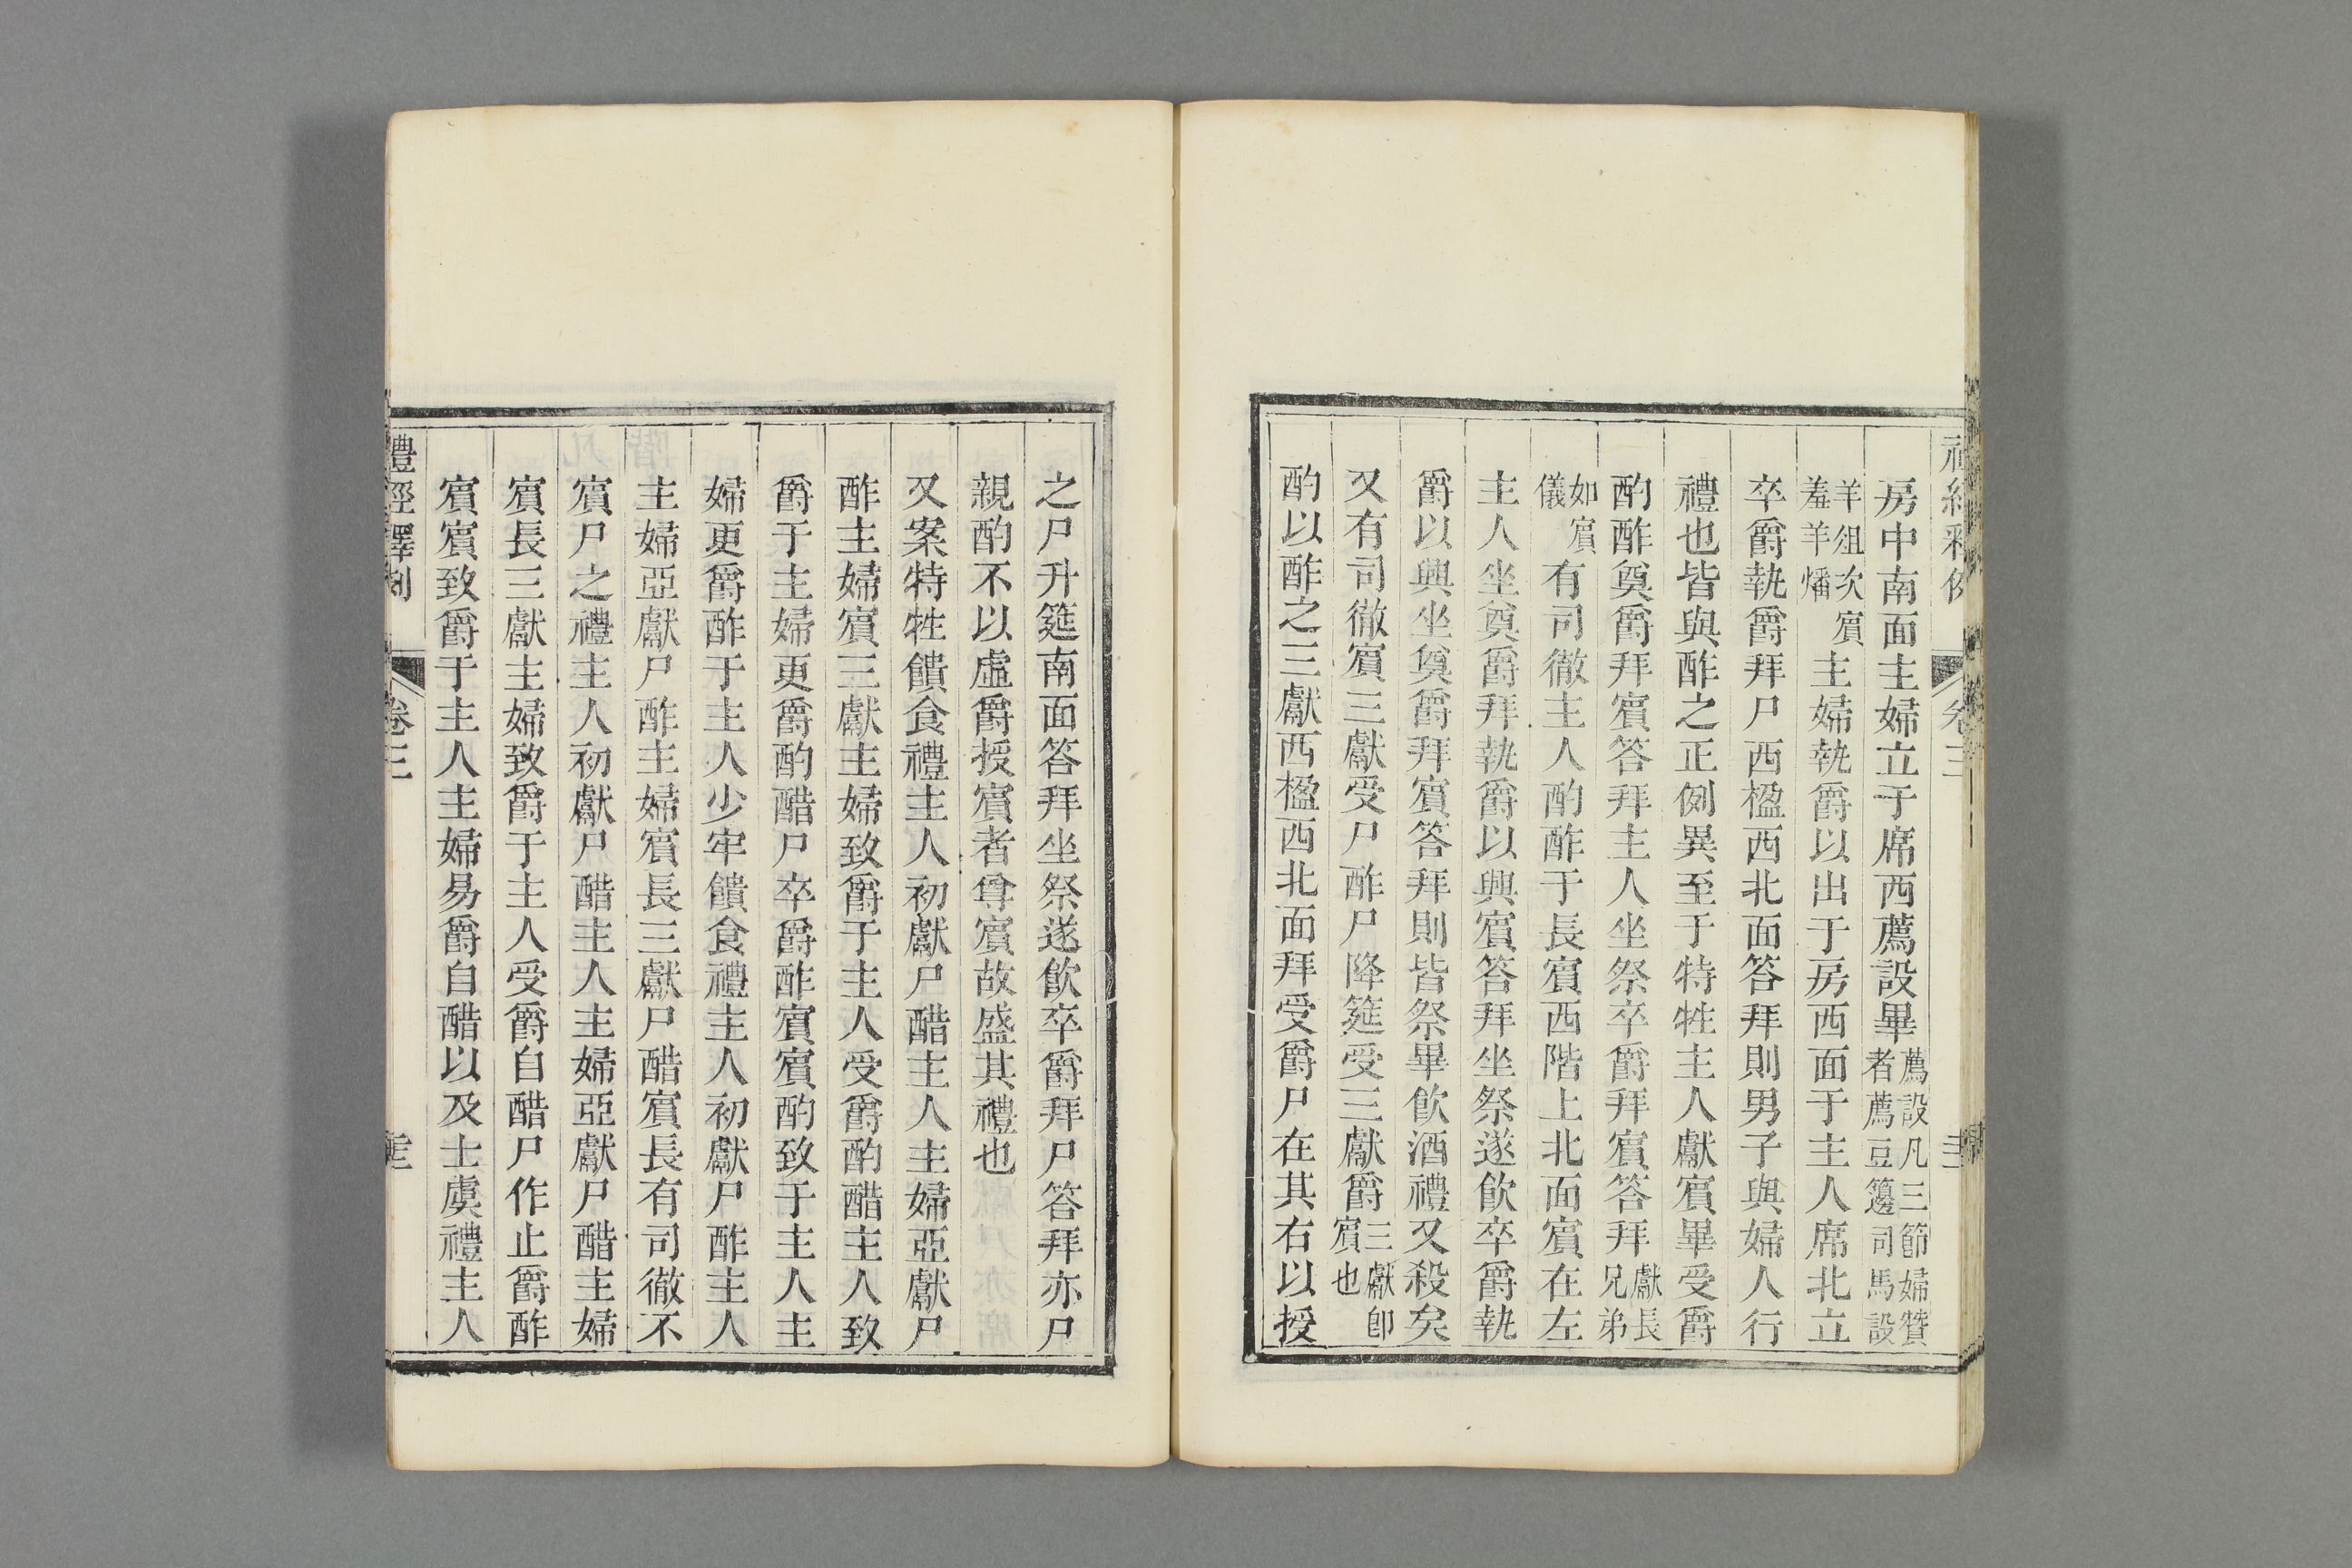 房中南面主婦立于席西薦設畢薦設凡三節婦贊者薦豆籩司馬設
羊俎次賓羞羊燔主婦執爵以出于房西面于主人席北立
卒爵執爵拜尸西楹西北面答拜則男子與婦人行
禮也皆與酢之正例異至于特牲主人獻賓畢受爵
酌酢奠爵拜賓答拜主人坐祭卒爵拜賓答拜獻長兄弟
如賓儀有司徹主人酌酢于長賓西階上北面賓在左
主人坐奠爵拜執爵以興賓答拜坐祭遂飲卒爵執
爵以興坐奠爵拜賓答拜則皆祭畢飲酒禮又殺矣
又有司徹賓三獻受尸酢尸降筵受三獻爵三獻卽賓也
酌以酢之三獻西楹西北面拜受爵尸在其右以授
之尸升筵南面答拜坐祭遂飲卒爵拜尸答拜亦尸
親酌不以虛爵授賓者尊賓故盛其禮也
又案特牲饋食禮主人初獻尸醋主人主婦亞獻尸
酢主婦賓三獻主婦致爵于主人受爵酌醋主人致
爵于主婦更爵酌醋尸卒爵酢賓賓酌致于主人主
婦更爵酢于主人少牢饋食禮主人初獻尸酢主人
主婦亞獻尸酢主婦賓長三獻尸醋賓長有司徹不
賓尸之禮主人初獻尸醋主人主婦亞獻尸醋主婦
賓長三獻主婦致爵于主人受爵自醋尸作止爵酢
賓賓致爵于主人主婦易爵自醋以及士虞禮主人
禮經釋例
卷三